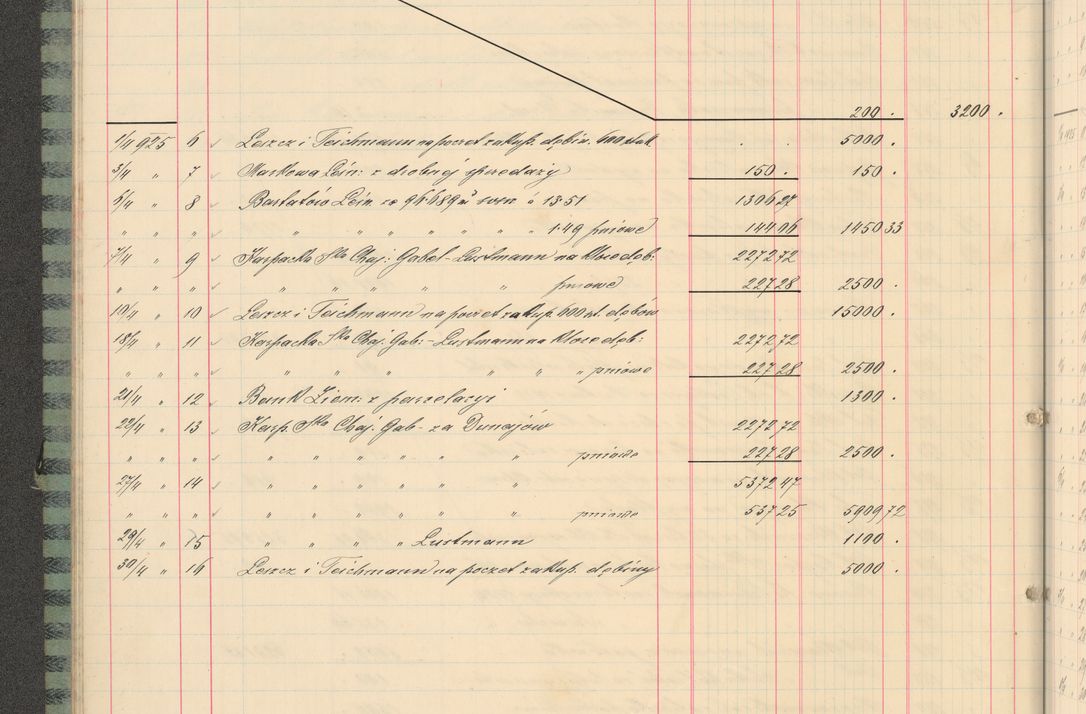 200 . 3200 .
1/4 925 6 Leszcz i Teichmann na poczet zakup. dębin. 600 sztuk . . 5000 .
3/4 " 7 Markowa Leśn: z drobnej sprzedaży 150 . 150 .
5/4 " 8 Bartatów Leśn za à 13·51 1306 27
" " " " " " " " " " 1·49 pniowe 144 06 1450 33
7/4 " 9 Karpacka Ska Chaj: Gabel-Lustmann na kloce dęb: 2272 72
" " " " " " " " pniowe 227 28 2500 .
10/4 " 10 Leszcz i Teichmann na poczet zakup. 600 szt. dębów 15000 .
18/4 " 11 Karpacka Ska Chaj. Gab:-Lustmann na kloce dęb: 2272 72
" " " " " " " " " pniowe 227 28 2500 .
21/4 " 12 Bank Ziem: z parcelacyi 1300 .
22/4 " 13 Karp. Ska Chaj. Gab- za Dunajów 2272 72
" " " " " " " " " pniowe 227 28 2500 .
27/4 " 14 " " " " " " 5372 47
" " " " " " " " " pniowe 537 25 5909 72
29/4 " 15 " " " " Lustmann 1100 .
30/4 " 16 Leszcz i Teichmann na poczet zakup. dębiny 5000 .